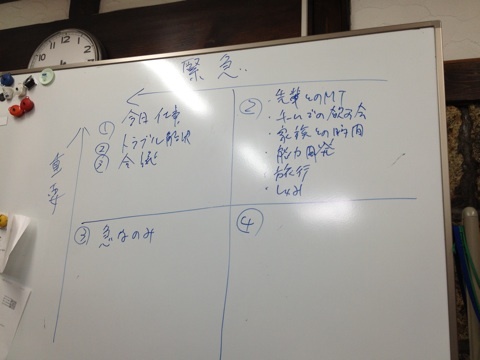 緊急
重要
① 今日仕事
② トラブル解決
③ 会議
② ・先輩とのMT
・チームでの飲み会
・家族との時間
・能力開発
・旅行
・しゅみ
③ 急なのみ
④